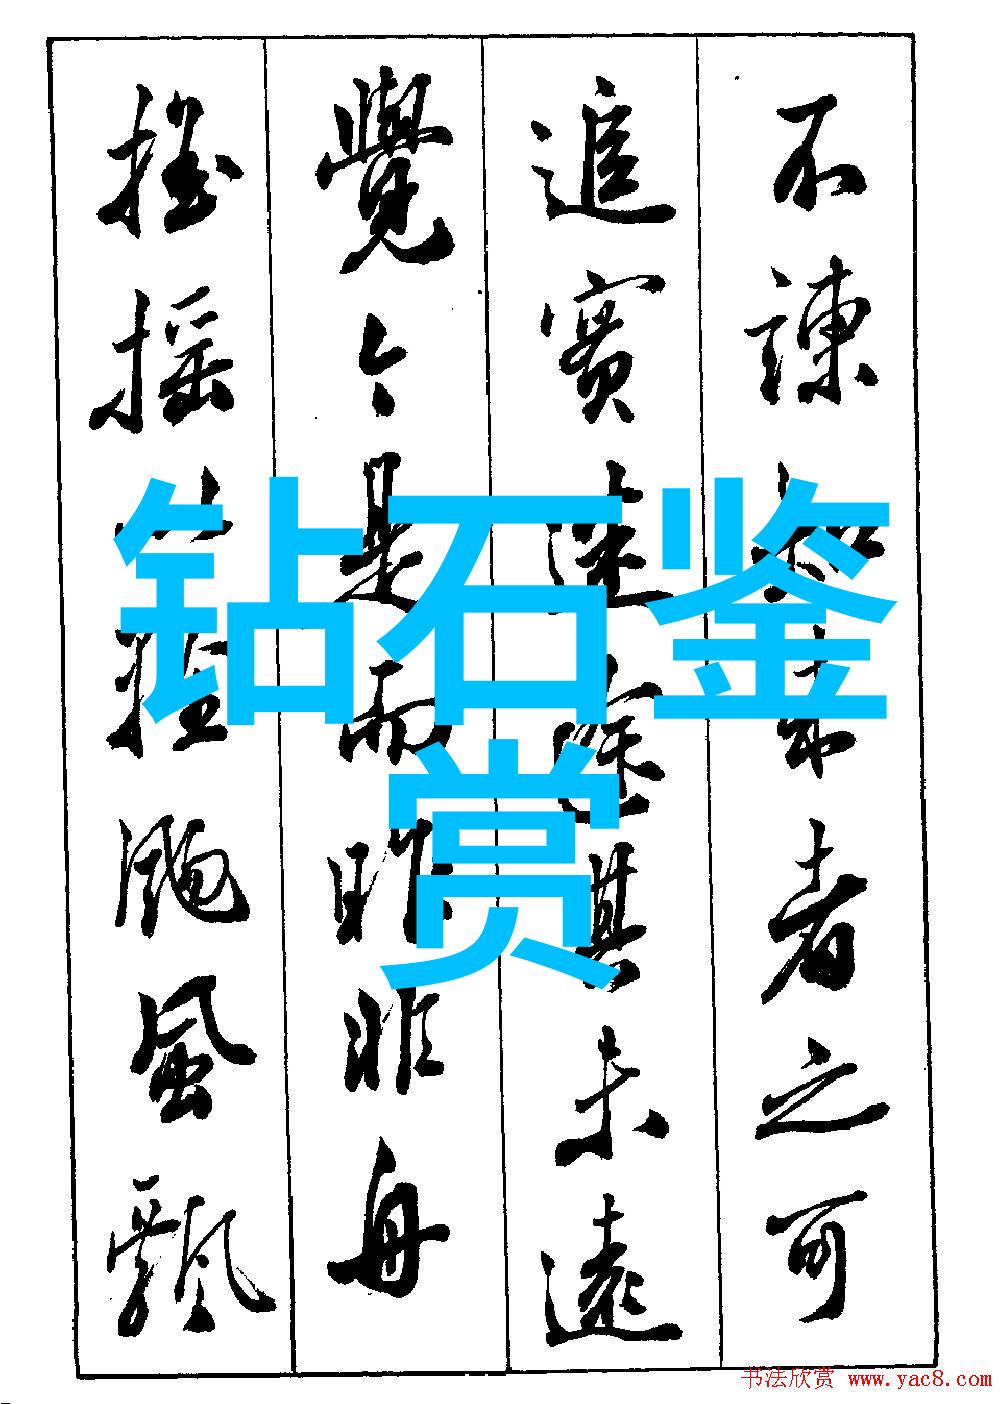 不諫知来者之可
追實迷塗其未遠
覺今是而昨非舟
搖搖以輕颺風飄
钻石鉴
赏
书法欣赏 www.yac8.com